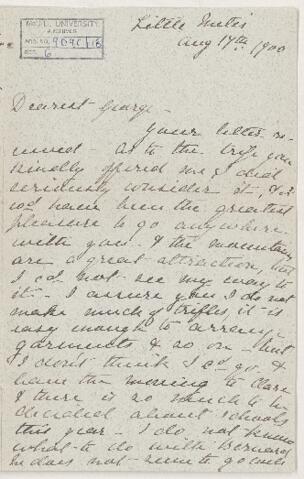 McGILL UNIVERSITY
ARCHIVES
ACC. NO. 9090/18
REF. 6
Little Metis
Aug 17th 1900
Dearest George -
Your letter re-
ceived - as to the trip you
kindly offered me I did
seriously consider it, & it
wd have been the greatest
pleasure to go anywhere
with you - & the mountains
are a great attraction, but
I cd not see my way to
it - I assure you I do not
make much of trifles, it is
easy enough to arrange
garments & so on - but
I don't think I cd go &
leave the moving to Clare
& there is so much to be
decided about schools
this year - I do not know
what to do with Bernard
he does not seem to go well